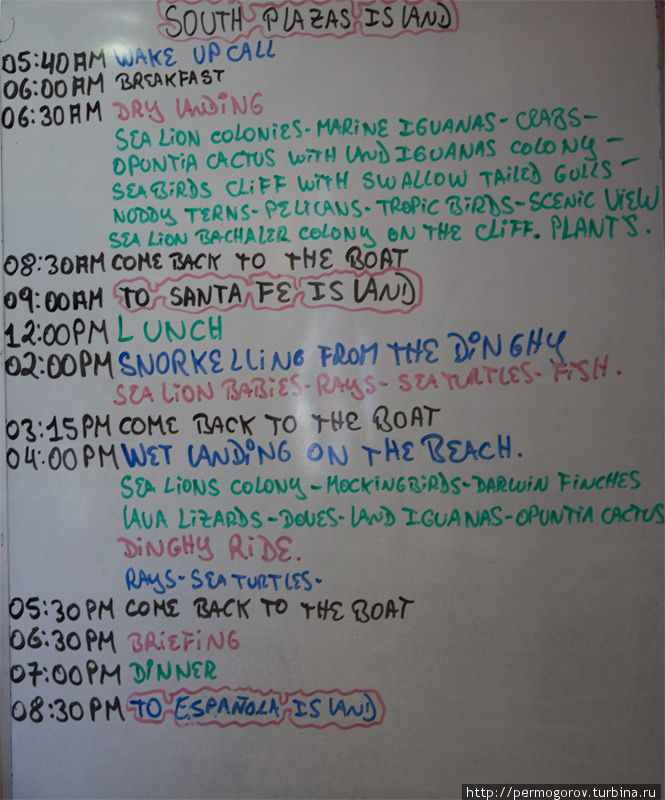 SOUTH PLAZAS ISLAND
05:40AM WAKE UP CALL
06:00AM BREAKFAST
06:30AM DRY LANDING
SEA LION COLONIES - MARINE IGUANAS - CRABS -
OPUNTIA CACTUS WITH LAND IGUANAS COLONY -
SEABIRDS CLIFF WITH SWALLOW TAILED GULLS -
NODDY TERNS - PELICANS - TROPIC BIRDS - SCENIC VIEW
SEA LION BACHALER COLONY ON THE CLIFF. PLANT'S.
08:30AM COME BACK TO THE BOAT
09:00AM TO SANTA FE ISLAND
12:00PM LUNCH
02:00PM SNORKELLING FROM THE DINGHY
SEA LION BABIES - RAYS - SEA TURTLES - FISH.
03:15PM COME BACK TO THE BOAT
04:00PM WET LANDING ON THE BEACH.
SEA LIONS COLONY - MOCKINGBIRDS - DARWIN FINCHES
LAVA LIZARDS - DOVES - LAND IGUANAS - OPUNTIA CACTUS
DINGHY RIDE.
RAYS - SEA TURTLES -
05:30PM COME BACK TO THE BOAT
06:30PM BRIEFING
07:00PM DINNER
08:30PM TO ESPAÑOLA ISLAND
http://permogorov.turbina.ru